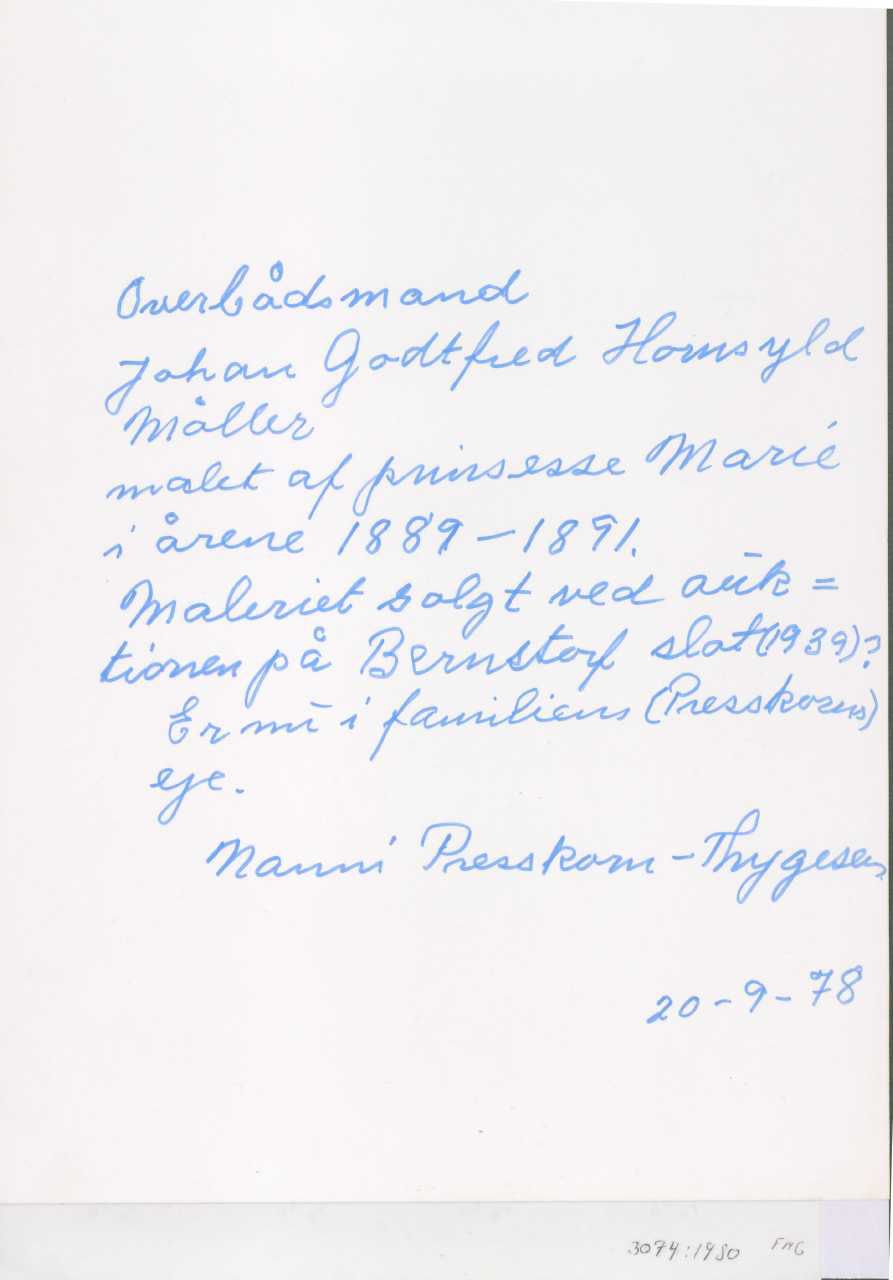 Overbådsmand
Johan Godtfred Hornsyld
Möller
malet af prinsesse Marie
i årene 1889-1891.
Maleriet solgt ved auk=
tionen på Bernstorf slot (1939)?
Er nu i familiens (Presskorns)
eje.
Nanni Presskorn-Thygesen
20-9-78
3074:1980 FMG